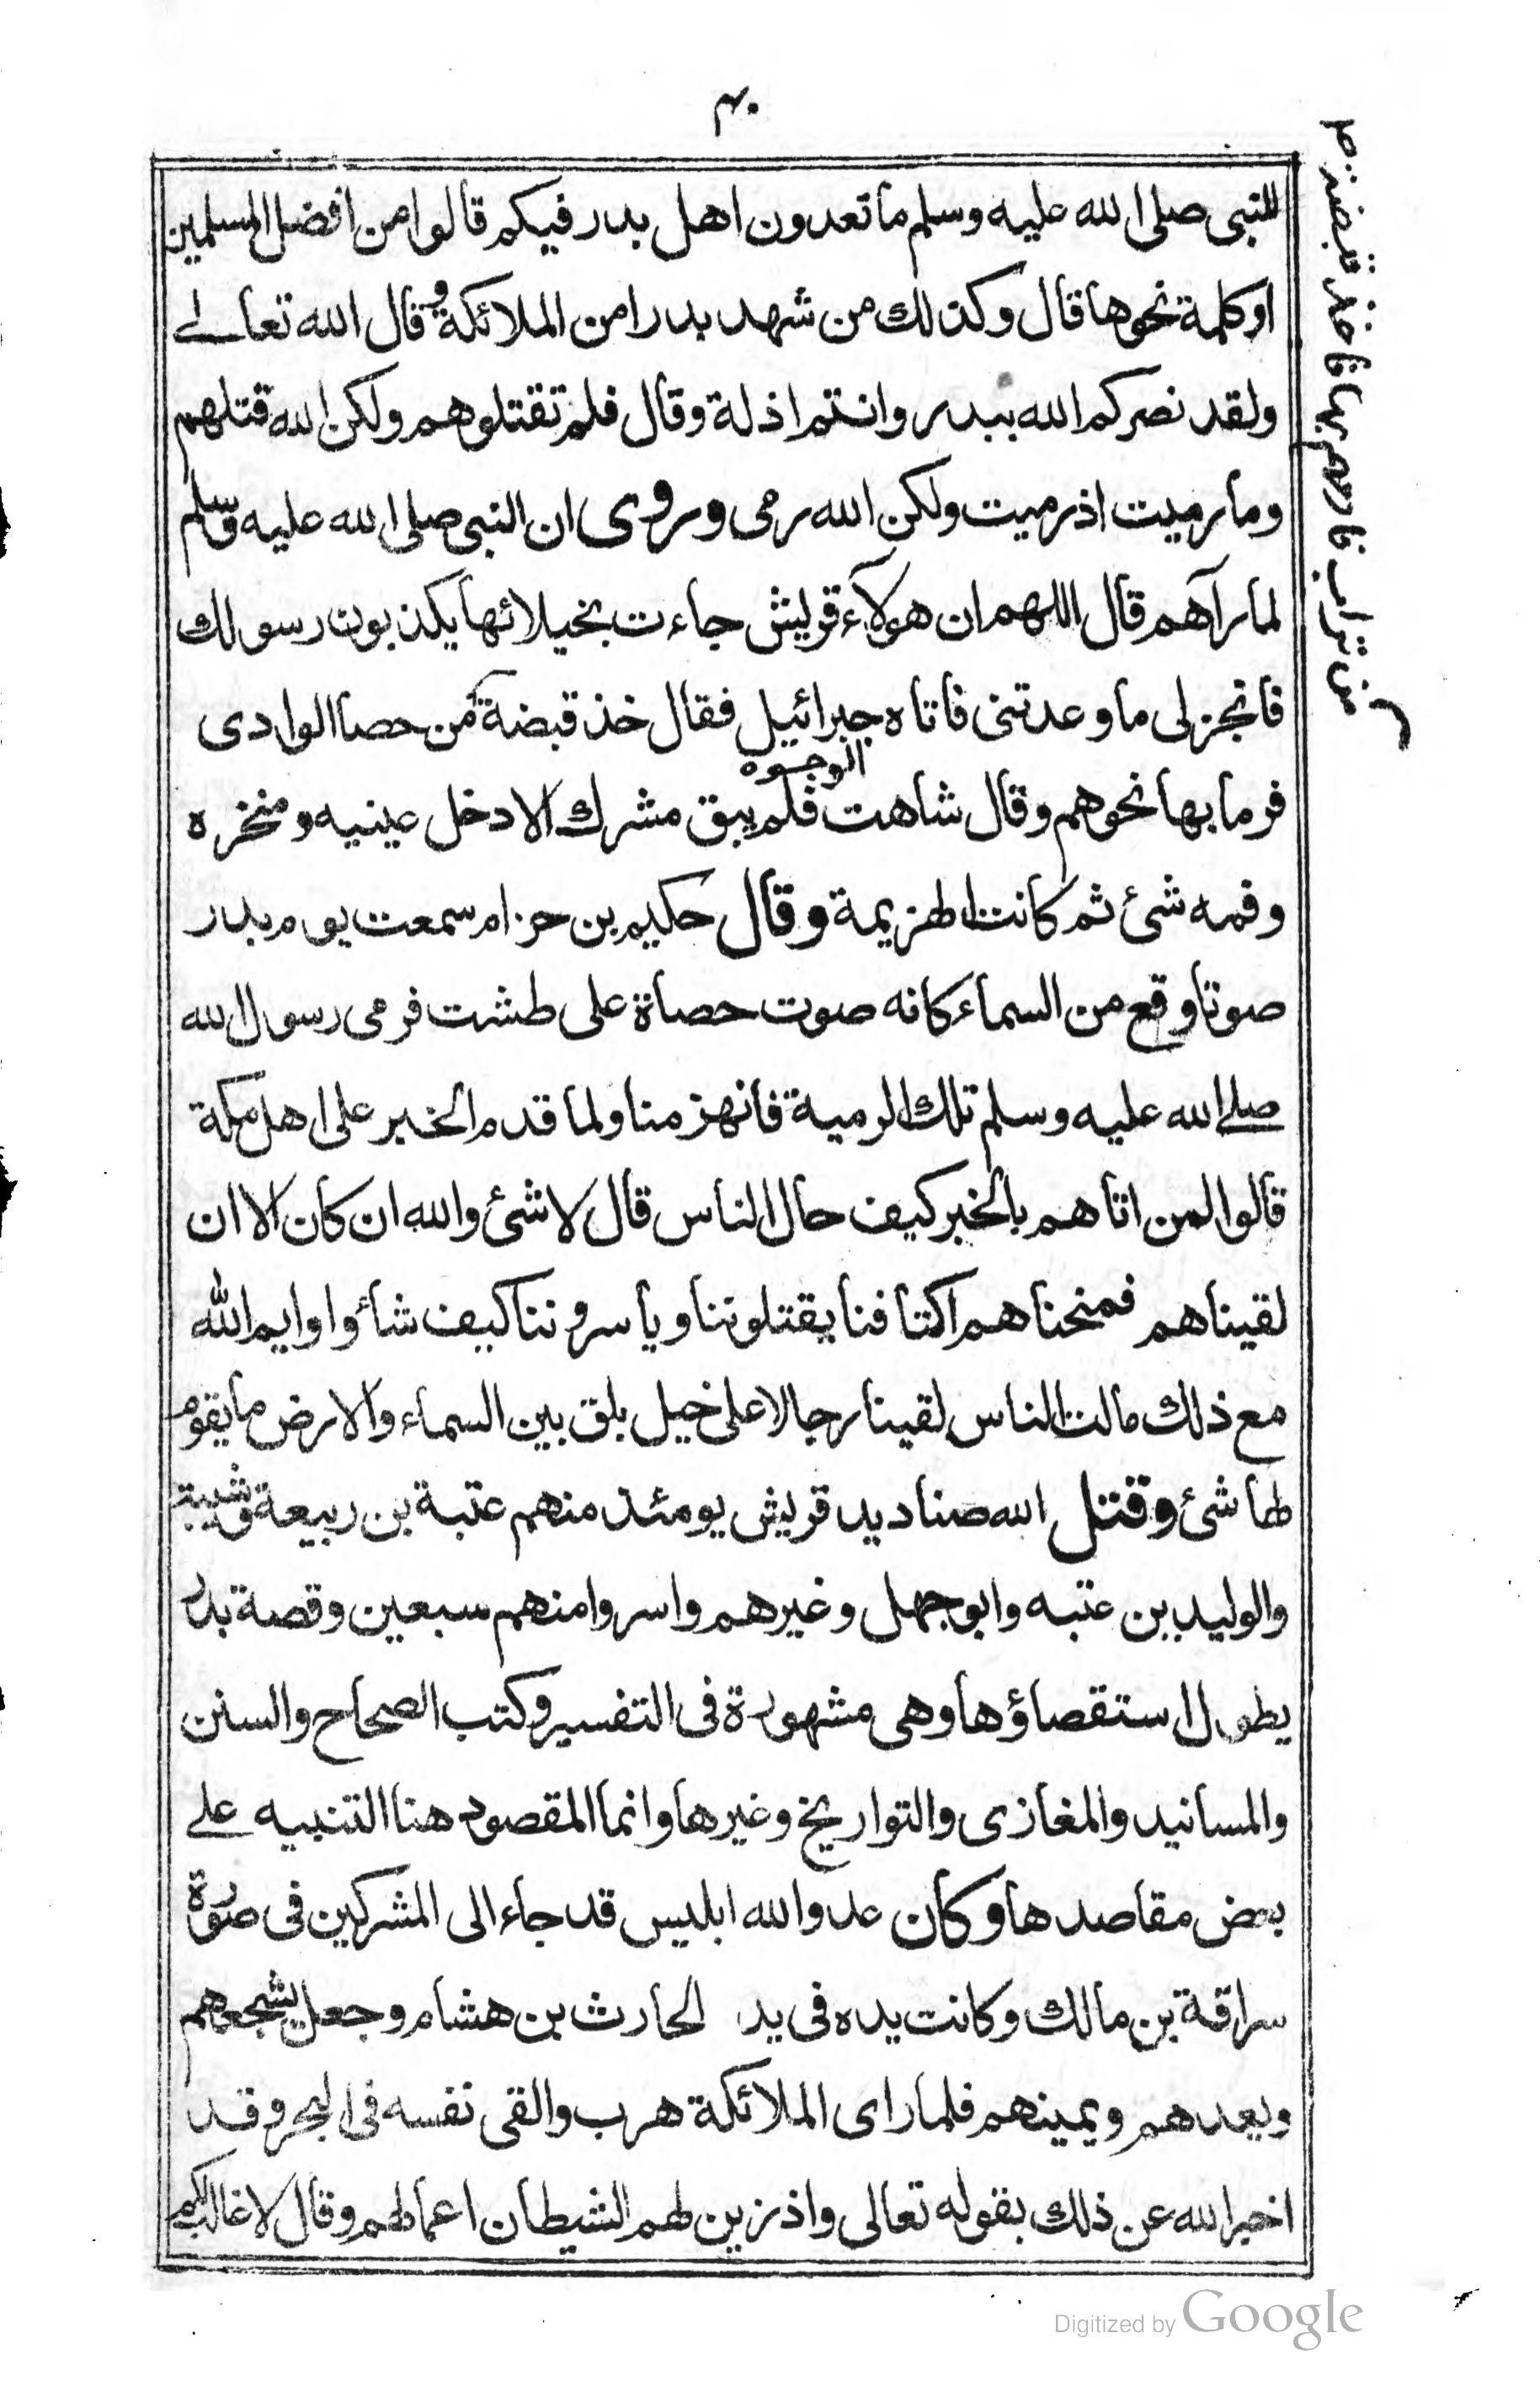 ٤٠
للنبى صلى الله عليه وسلم ما تعدون اهل بدر فيكم قالوا من افضل المسلمين
او كلمة نحوها قال وكذلك من شهد بدرا من الملائكة وقال الله تعالے
ولقد نصركم الله ببدر وانتم اذلة وقال فلم تقتلوهم ولكن الله قتلهم
وما رميت اذ رميت ولكن الله رمى وروى ان النبى صلى الله عليه وسلم
لما رآهم قال اللهم ان هولآء قريش جاءت بخيلائها يكذبون رسولك
فانجز لى ما وعدتنى فاتاه جبرائيل فقال خذ قبضة من حصا الوادى
فرما بها نحوهم وقال شاهت الوجوه فلم يبق مشرك الا دخل عينيه ومنخره
وفمه شئ ثم كانت الهزيمة وقال حكيم بن حزام سمعت يوم بدر
صوتا وقع من السماء كانه صوت حصاة على طشت فرمى رسول الله
صلے الله عليه وسلم تلك الرمية فانهزمنا ولما قدم الخبر على اهل مكة
قالوا لمن اتاهم بالخبر كيف حال الناس قال لا شئ والله ان كان الا ان
لقيناهم فمنحناهم اكتافنا يقتلوننا وياسروننا كيف شاؤا وايم الله
مع ذلك مالت الناس لقينا رجالا على خيل بلق بين السماء والارض ما يقوم
لها شئ وقتل الله صناديد قريش يومئذ منهم عتبة بن ربيعة وشيبة
والوليد بن عتبه وابو جهل وغيرهم واسروا منهم سبعين وقصة بدر
يطول استقصاؤها وهى مشهورة فى التفسير وكتب الصحاح والسنن
والمسانيد والمغازى والتواريخ وغيرها وانما المقصود هنا التنبيه علے
بعض مقاصدها وكان عدو الله ابليس قد جاء الى المشركين فى صورة
سراقة بن مالك وكانت يده فى يد الحارث بن هشام وجعل يشجعهم
ويعدهم ويمينهم فلما راى الملائكة هرب والقى نفسه فى البحر وقد
اخبر الله عن ذلك بقوله تعالى واذ زين لهم الشيطان اعمالهم وقال لا غالب لكم
من تراب فارمهم بها فاخذ قبضة
Digitized by Google